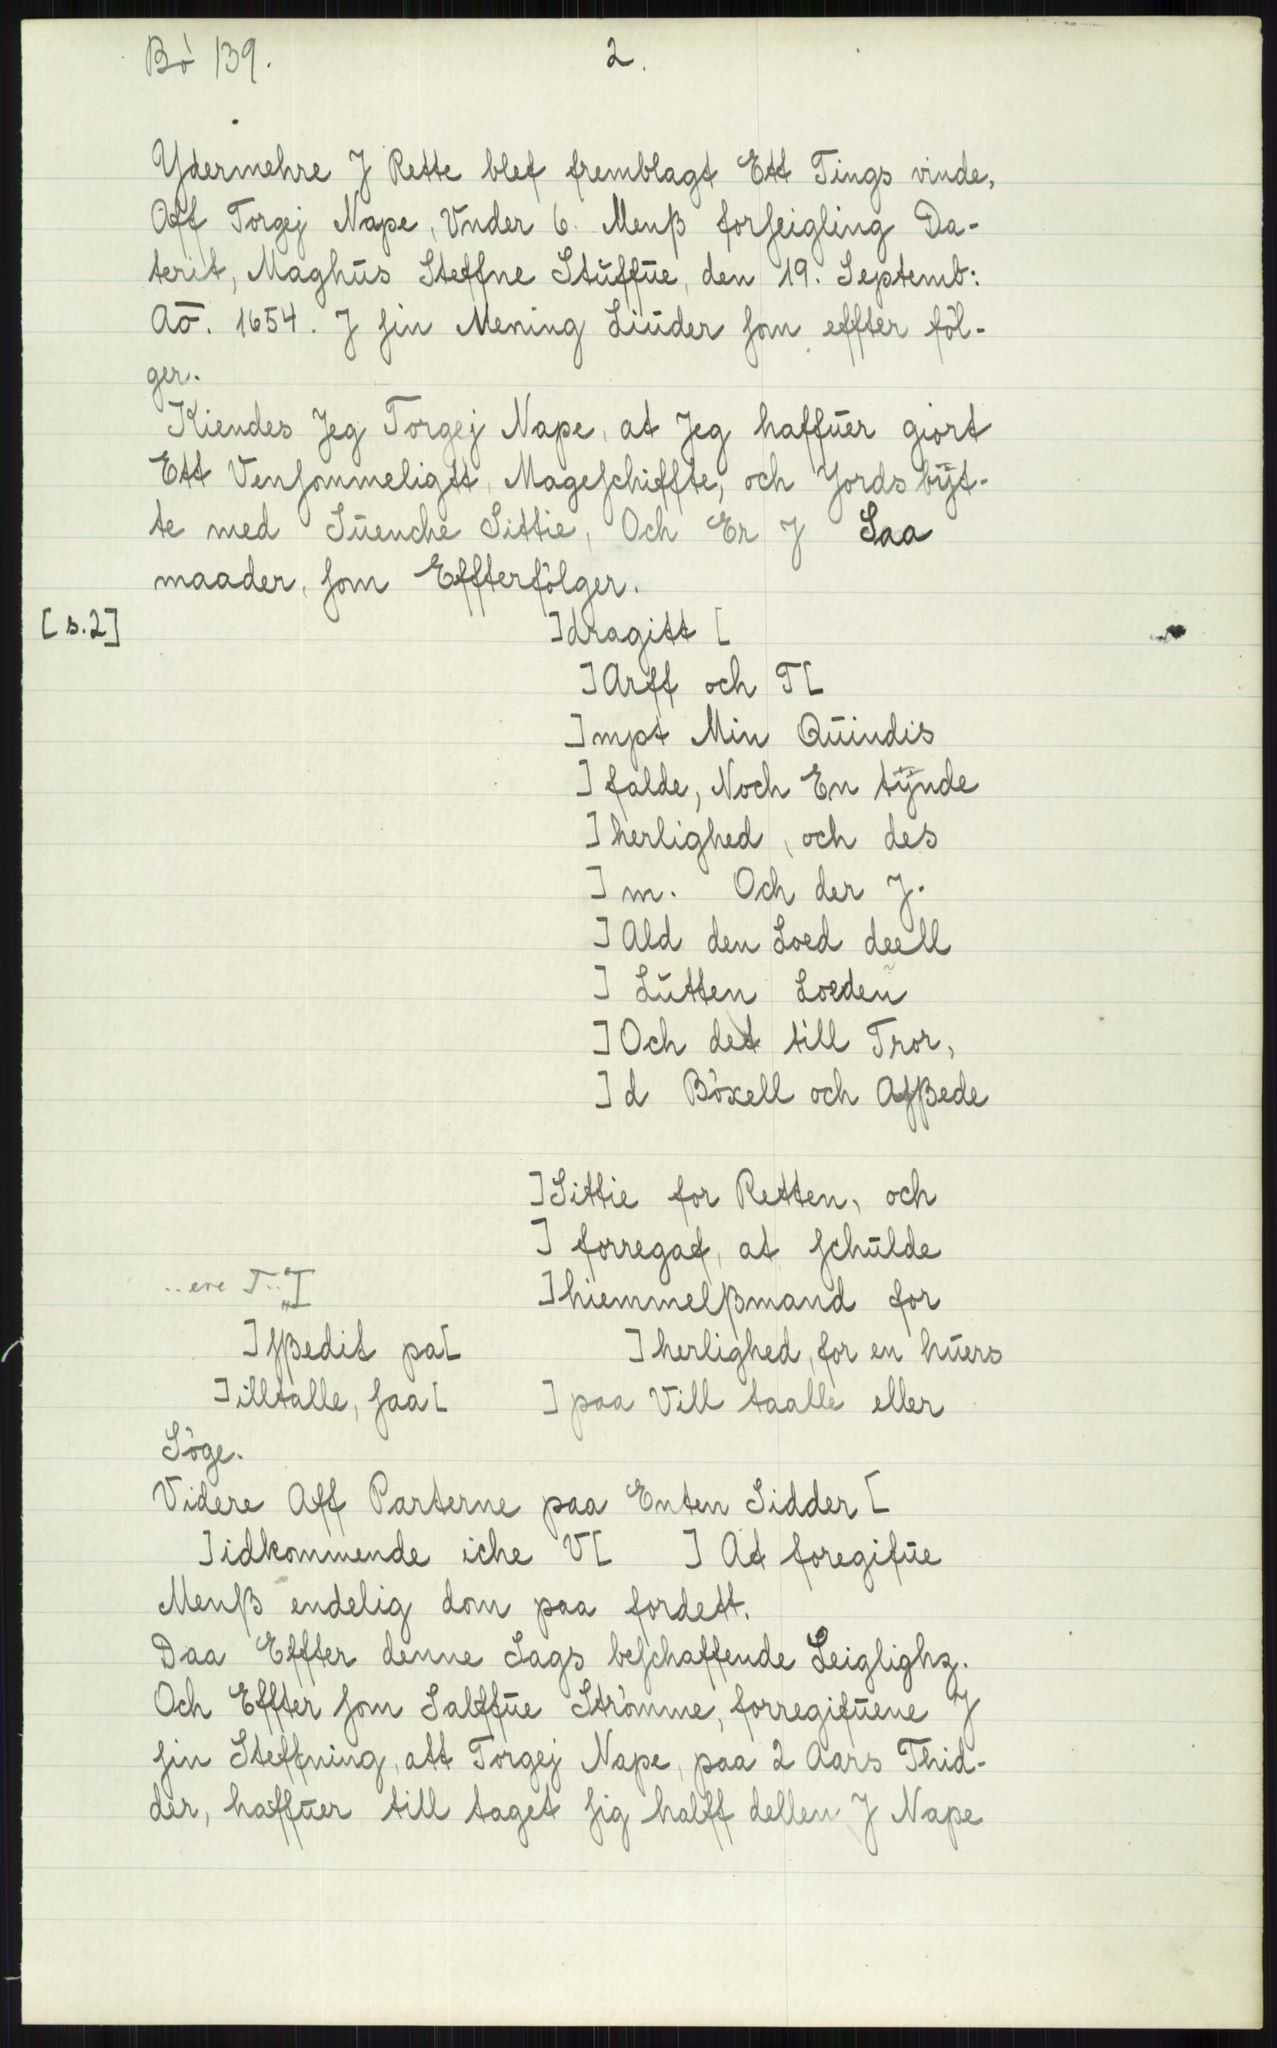 Bö 139.
2.
Ydermehre J Rette blef fremblagt Ett Tings vinde,
Aff Torgej Nape, Vnder 6. Menß forseigling Da-
terit, Maghūs Steffne Stūffūe, den 19. Septemb:
Aō. 1654. J sin Mening Liūder som effter föl-
ger.
Kiendes Jeg Torgej Nape, at Jeg haffūer giort
Ett Vensommeligtt, Mageschiffte, och Jords bÿt-
te med Sūenche Sittie, Och Er J Saa
maader, som Effterfölger.
[s.2] ]dragitt [
]Arff och T[
]mpt Min Qūindis
] falde, Noch En tÿnde
] herlighed, och des
] m. Och der J.
] Ald den Loed deell
] Lūtten Loeden
] Och det till Tror,
] d Böxell och Aßede
]Sittie for Retten, och
] forregaf, at schūlde
..ere T..I ]hiemmelßmand for
]sßedit pa[ ]herlighed, for en hūers
]illtalle, saa[ ]paa Vill taalle eller
Söge.
Videre Aff Parterne paa Enten Sidder [
]idkommende iche V[ ] At foregifūe
Menß endelig dom paa fordett.
Daa Effter denne Sags beschaffende Leiglighz.
Och Effter som Salffūe Strömme, forregifūene J
sin Steffning, att Torgej Nape, paa 2 Aars Thid-
der, haffūer till taget sig halff dellen J Nape